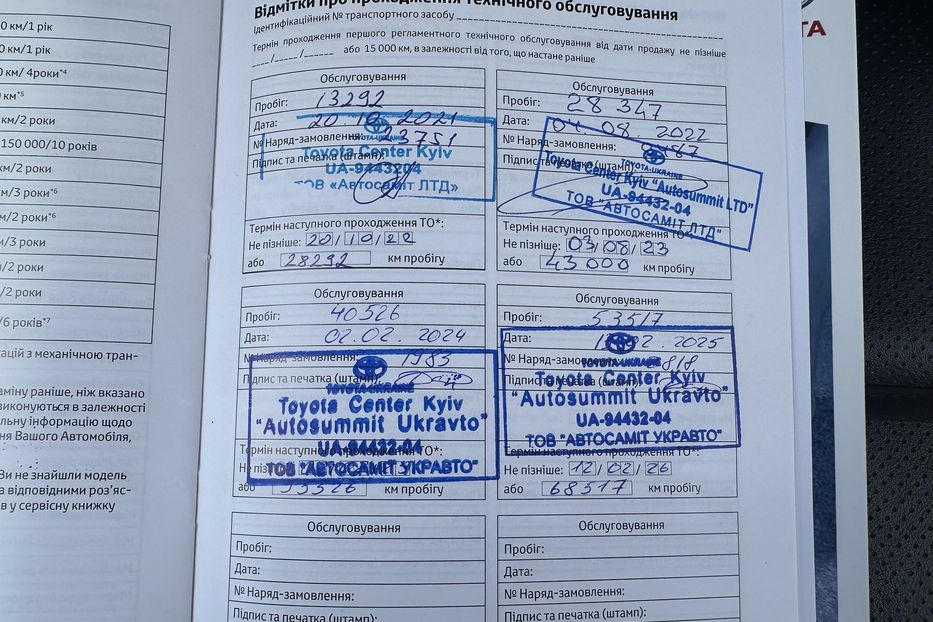 0 км/1 рік
0 км/1 рік
0 км/ 4роки*4
0 км*5
км/2 роки
150 000/10 років
км/2 роки
м/3 роки*6
км/2 роки*6
м/3 роки
м/2 роки
/2 роки
/6 років*7
кацій з механічною тран-
аміну раніше, ніж вказано
виконуються в залежності
льну інформацію щодо
ня Вашого Автомобіля,
Ви не знайшли модель
а відповідними роз'яс-
в у сервісну книжку
Відмітки про проходження технічного обслуговування
Ідентифікаційний № транспортного засобу
Термін проходження першого регламентного технічного обслуговування від дати продажу не пізніше
___/___/______ або 15 000 км, в залежності від того, що настане раніше
Обслуговування
Пробіг: 13292
Дата: 20 10 2021
№ Наряд-замовлення: 23751
Підпис та печатка (штамп):
TOYOTA-UKRAINE
Toyota Center Kyiv
UA-9443204
ТОВ «Автосаміт ЛТД»
Термін наступного проходження ТО*:
Не пізніше: 20/10/22
або 28292 км пробігу
Обслуговування
Пробіг: 28 347
Дата: 04.08.2022
№ Наряд-замовлення:
Підпис та печатка (штамп):
TOYOTA-UKRAINE
Toyota Center Kyiv "Autosummit LTD"
UA-94432-04
ТОВ "АВТОСАМІТ ЛТД"
Термін наступного проходження ТО*:
Не пізніше: 03/08/23
або 43 000 км пробігу
Обслуговування
Пробіг: 40526
Дата: 02.02.2024
№ Наряд-замовлення: 1983
Підпис та печатка (штамп):
TOYOTA-UKRAINE
Toyota Center Kyiv
"Autosummit Ukravto"
UA-94432-04
ТОВ "АВТОСАМІТ УКРАВТО"
Термін наступного проходження ТО*:
Не пізніше:
або 55526 км пробігу
Обслуговування
Пробіг: 53517
Дата: 02.2025
№ Наряд-замовлення: 818
Підпис та печатка (штамп):
TOYOTA-UKRAINE
Toyota Center Kyiv
"Autosummit Ukravto"
UA-94432-04
ТОВ "АВТОСАМІТ УКРАВТО"
Термін наступного проходження ТО*:
Не пізніше: 12/02/26
або 68517 км пробігу
Обслуговування
Пробіг:
Дата:
№ Наряд-замовлення:
Підпис та печатка (штамп):
Обслуговування
Пробіг:
Дата:
№ Наряд-замовлення:
Підпис та печатка (штамп):
TA